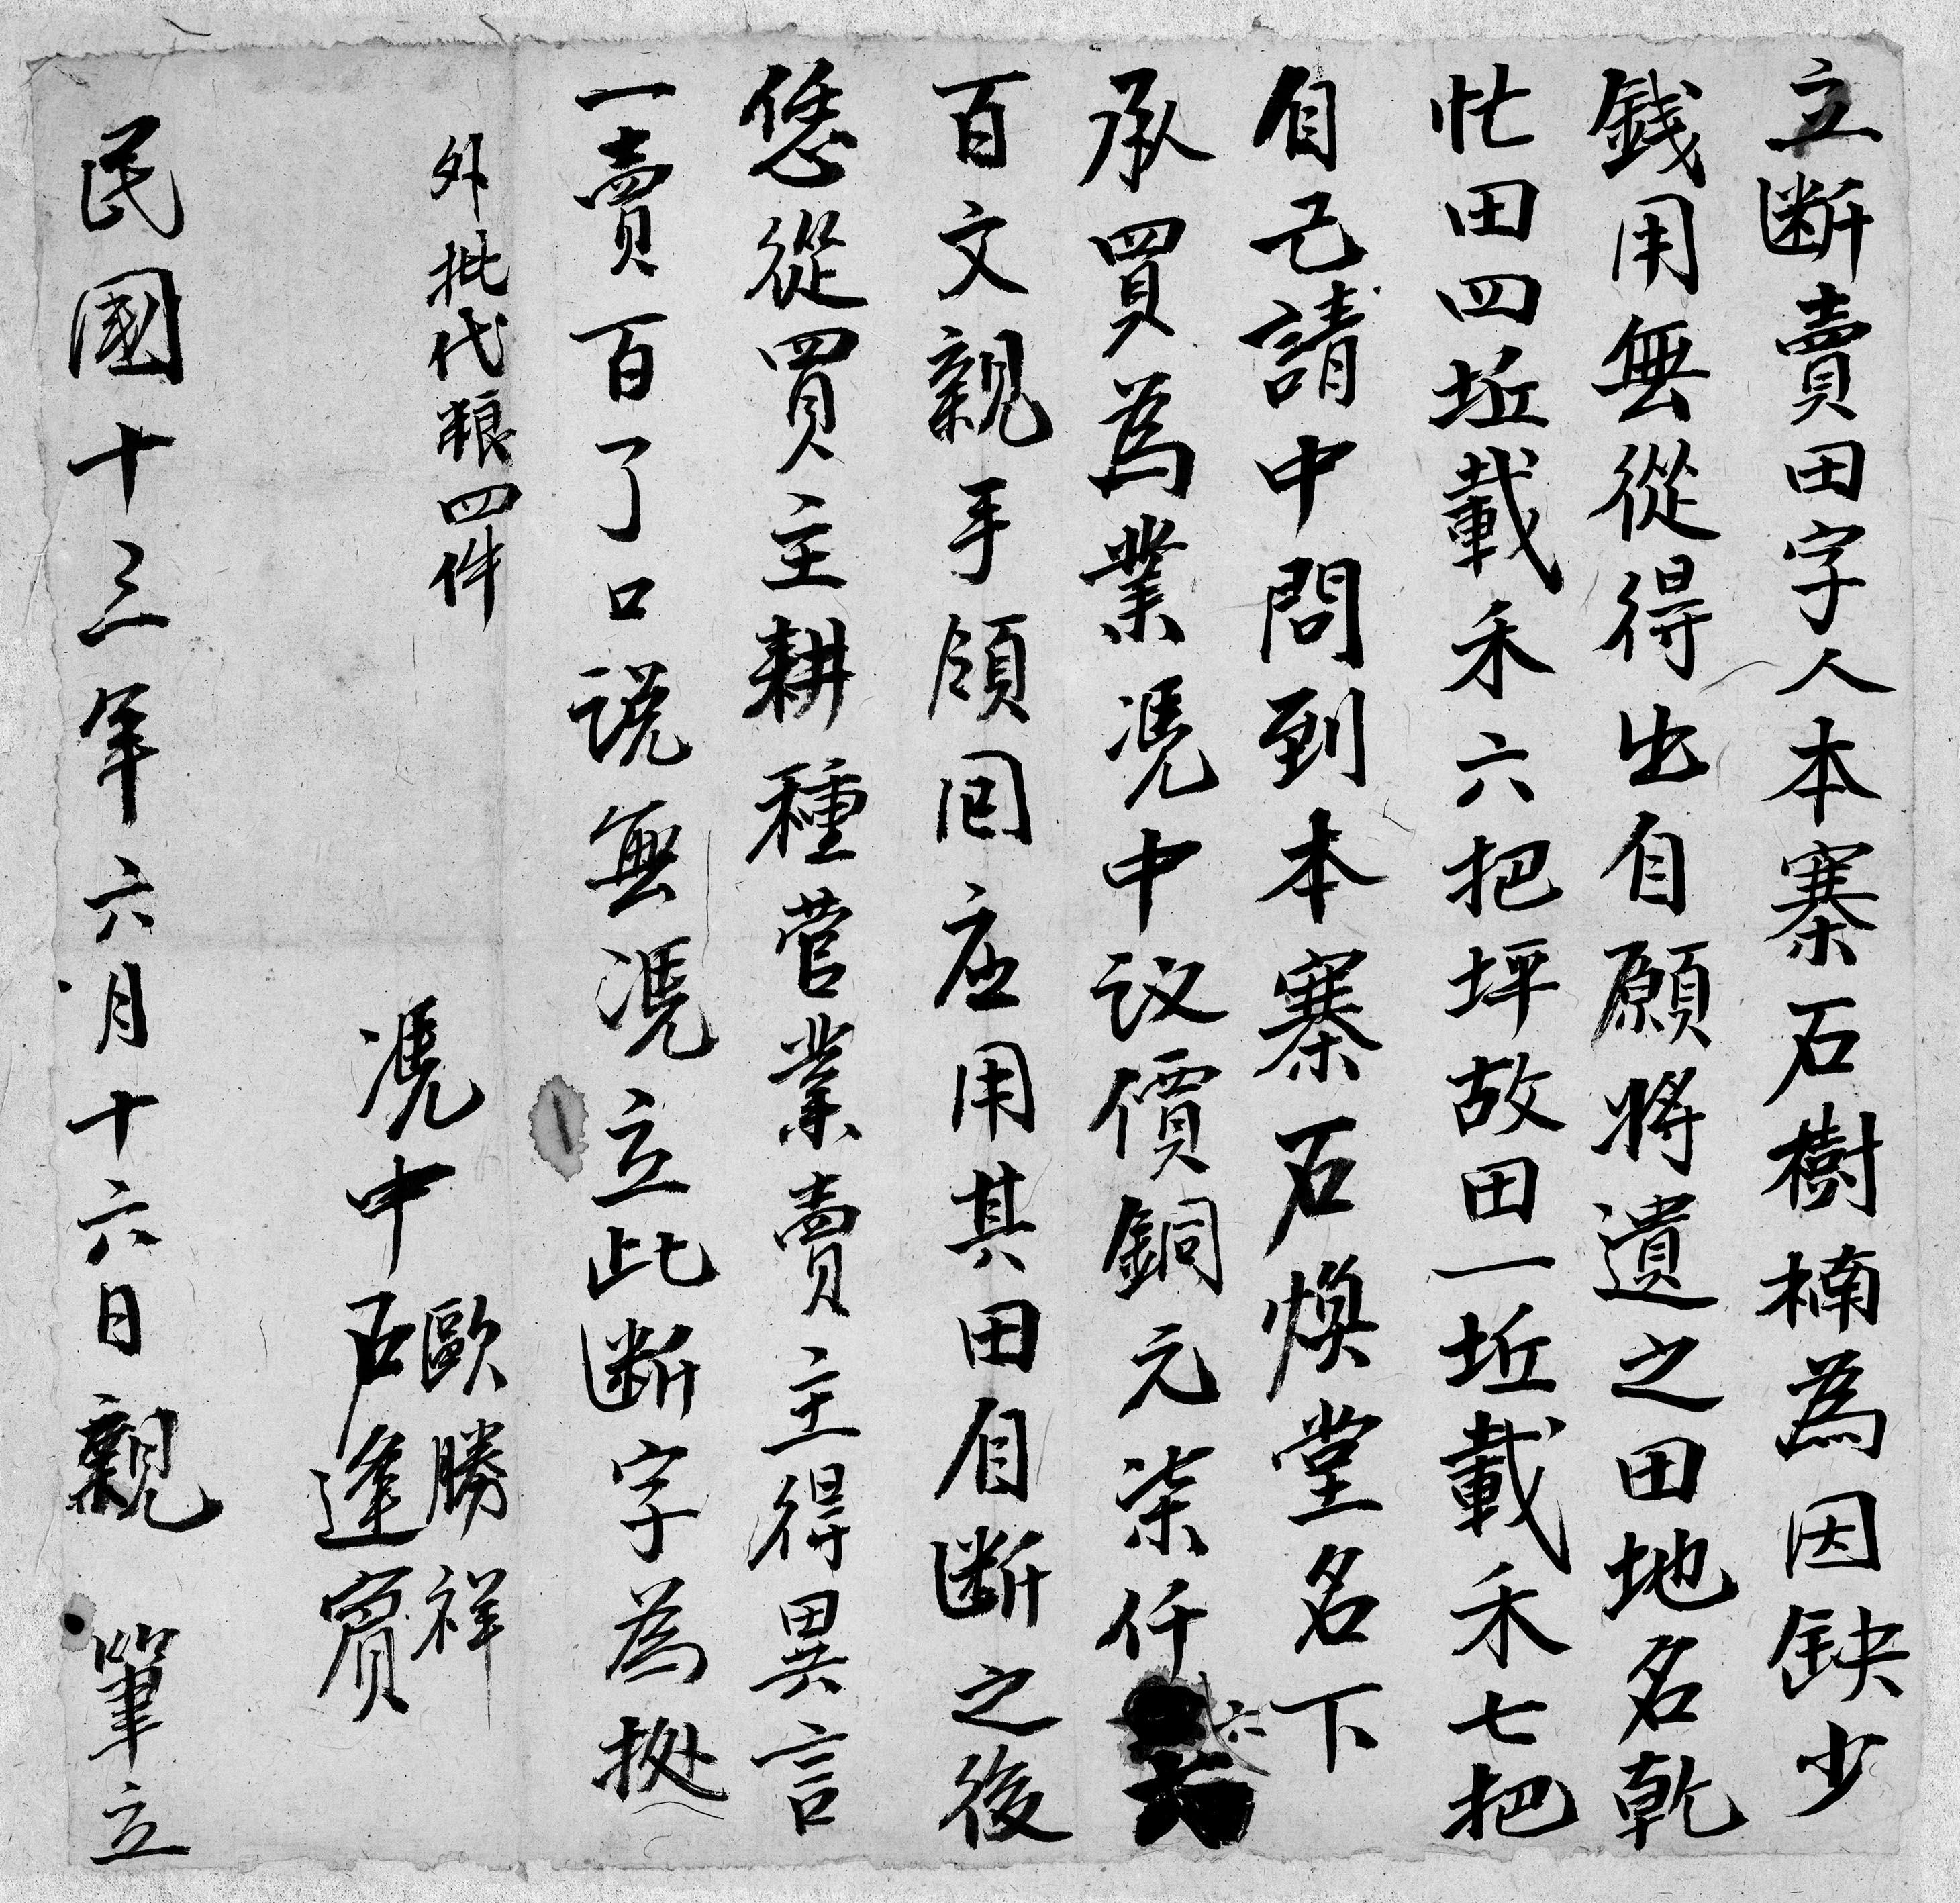 立断賣田字人本寨石樹楠為因缺少
錢用無從得出自願將遺之田地名乾
忙田四坵載禾六把坪故田一坵載禾七把
自己請中問到本寨石煥堂名下
承買為業憑中议價銅元柒仟六
百文親手領囬应用其田自断之後
恁從買主耕種管業賣主得異言
一賣百了口说無憑立此断字為挍
外批代粮四件
憑中 歐勝祥
石逢賓
民國十三年六月十六日親筆立